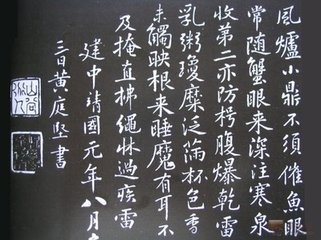 風爐小鼎不須催魚眼
常随蟹眼來深注寒泉
收第二亦防枵腹爆乾雷
乳粥瓊糜泛滿杯色香
味觸映根來睡魔有耳不
及掩直拂繩牀過疾雷
建中靖國元年八月十
三日黃庭堅書
山谷道人